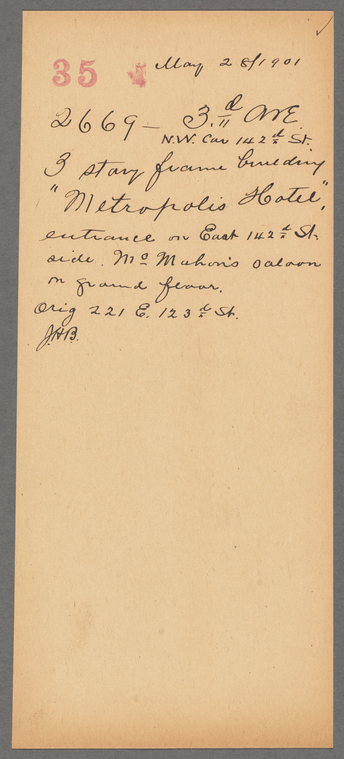 35 May 28/1901
2669 — 3.d AVE
N.W. Cor 142d St.
3 story frame building
"Metropolis Hotel",
entrance on East 142d St.
side. Mc Mahon's saloon
on ground floor.
Orig 221 E. 123d St.
J.H.B.